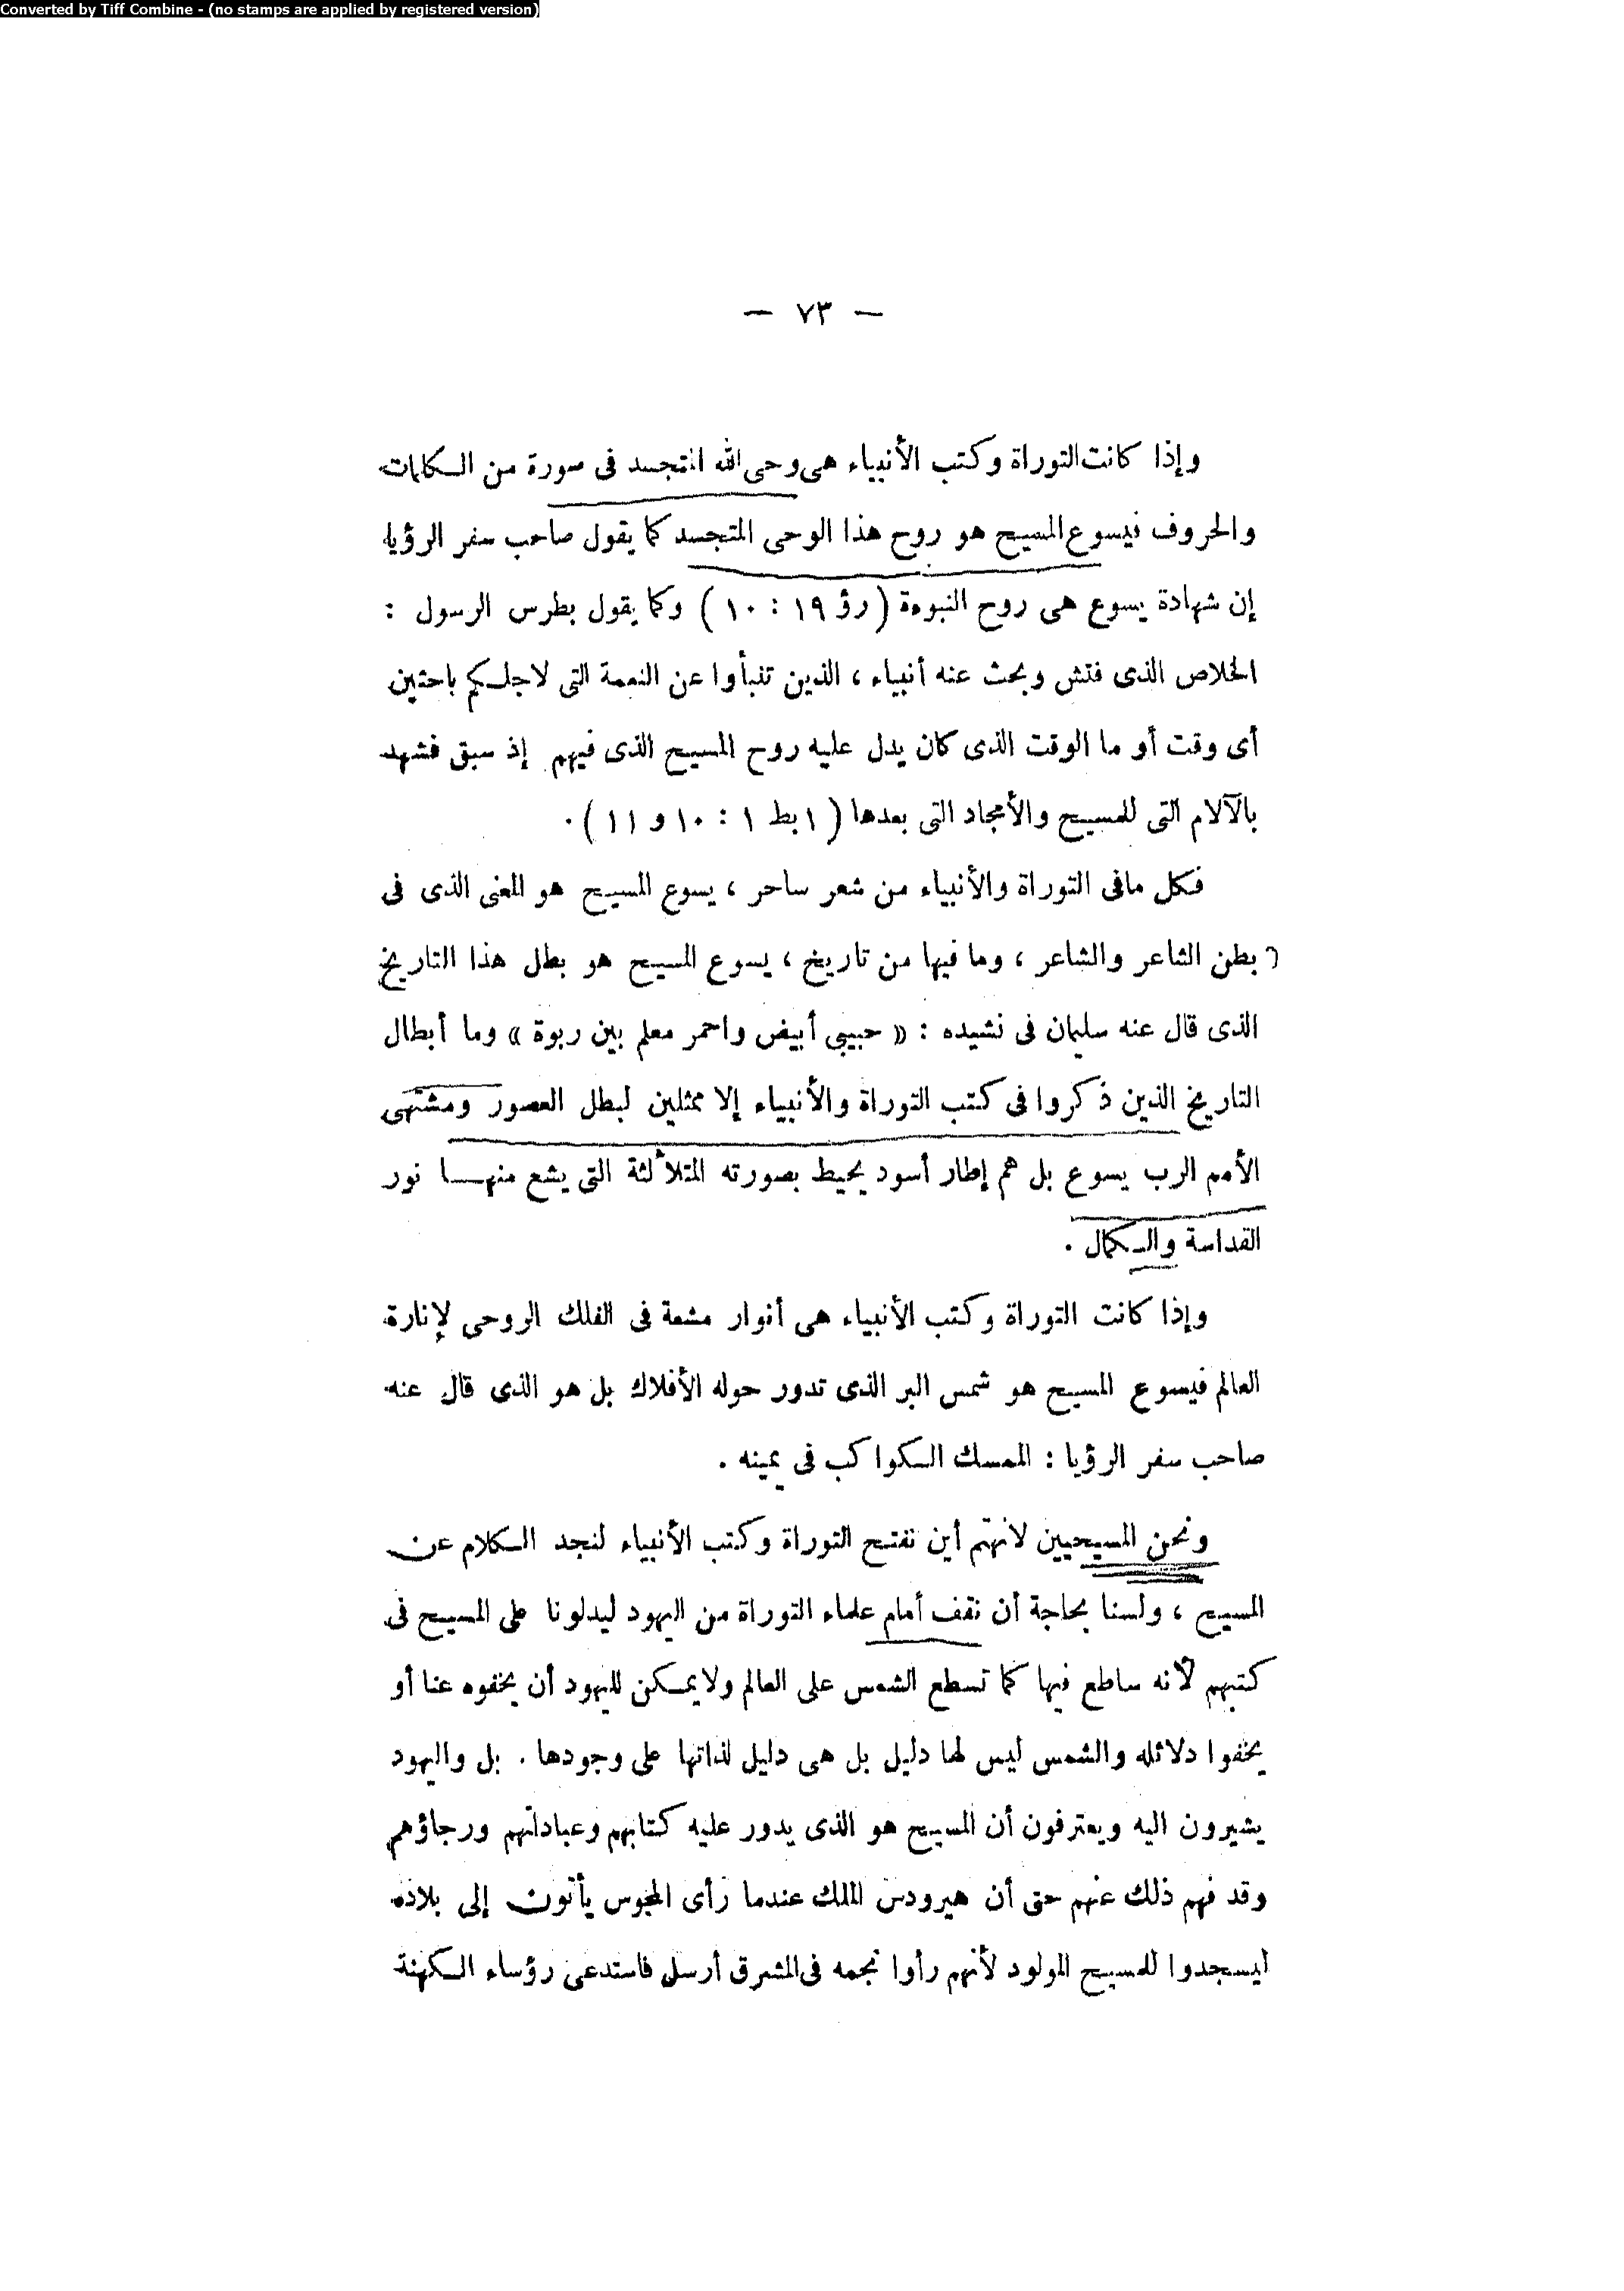 Converted by Tiff Combine - (no stamps are applied by registered version)
— ٧٣ —
وإذا كانت التوراة وكتب الأنبياء هى وحى الله المتجسد فى صورة من الكلمات
والحروف فيسوع المسيح هو روح هذا الوحى المتجسد كما يقول صاحب سفر الرؤيا
إن شهادة يسوع هى روح النبوءة ( رؤ ١٩ : ١٠ ) وكما يقول بطرس الرسول :
الخلاص الذى فتش وبحث عنه أنبياء ، الذين تنبأوا عن النعمة التى لاجلكم باحثين
أى وقت أو ما الوقت الذى كان يدل عليه روح المسيح الذى فيهم إذ سبق فشهد
بالآلام التى للمسيح والأمجاد التى بعدها ( ١ بط ١ : ١٠ و ١١ ) .
فكل مافى التوراة والأنبياء من شعر ساحر ، يسوع المسيح هو المعنى الذى فى
بطن الشاعر والشاعر ، وما فيها من تاريخ ، يسوع المسيح هو بطل هذا التاريخ
الذى قال عنه سليمان فى نشيده : « حبيبى أبيض واحمر معلم بين ربوة » وما أبطال
التاريخ الذين ذكروا فى كتب التوراة والأنبياء إلا ممثلين لبطل العصور ومشتهى
الأمم الرب يسوع بل هم إطار أسود يحيط بصورته المتلألئة التى يشع منها نور
القداسة والكمال .
وإذا كانت التوراة وكتب الأنبياء هى أنوار مشعة فى الفلك الروحى لإنارة
العالم فيسوع المسيح هو شمس البر الذى تدور حوله الأفلاك بل هو الذى قال عنه
صاحب سفر الرؤيا : الممسك الكواكب فى يمينه .
ونحن المسيحيين لانهتم أين نفتح التوراة وكتب الأنبياء لنجد الكلام عن
المسيح ، ولسنا بحاجة أن نقف أمام علماء التوراة من اليهود ليدلونا على المسيح فى
كتبهم لأنه ساطع فيها كما تسطع الشمس على العالم ولايمكن لليهود أن يخفوه عنا أو
يخفوا دلائله والشمس ليس لها دليل بل هى دليل لذاتها على وجودها . بل واليهود
يشيرون اليه ويعترفون أن المسيح هو الذى يدور عليه كتابهم وعباداتهم ورجاؤهم
وقد فهم ذلك عنهم حتى أن هيرودس الملك عندما رأى المجوس يأتون إلى بلاده
ليسجدوا للمسيح المولود لأنهم رأوا نجمه فى المشرق أرسل فاستدعى رؤساء الكهنة